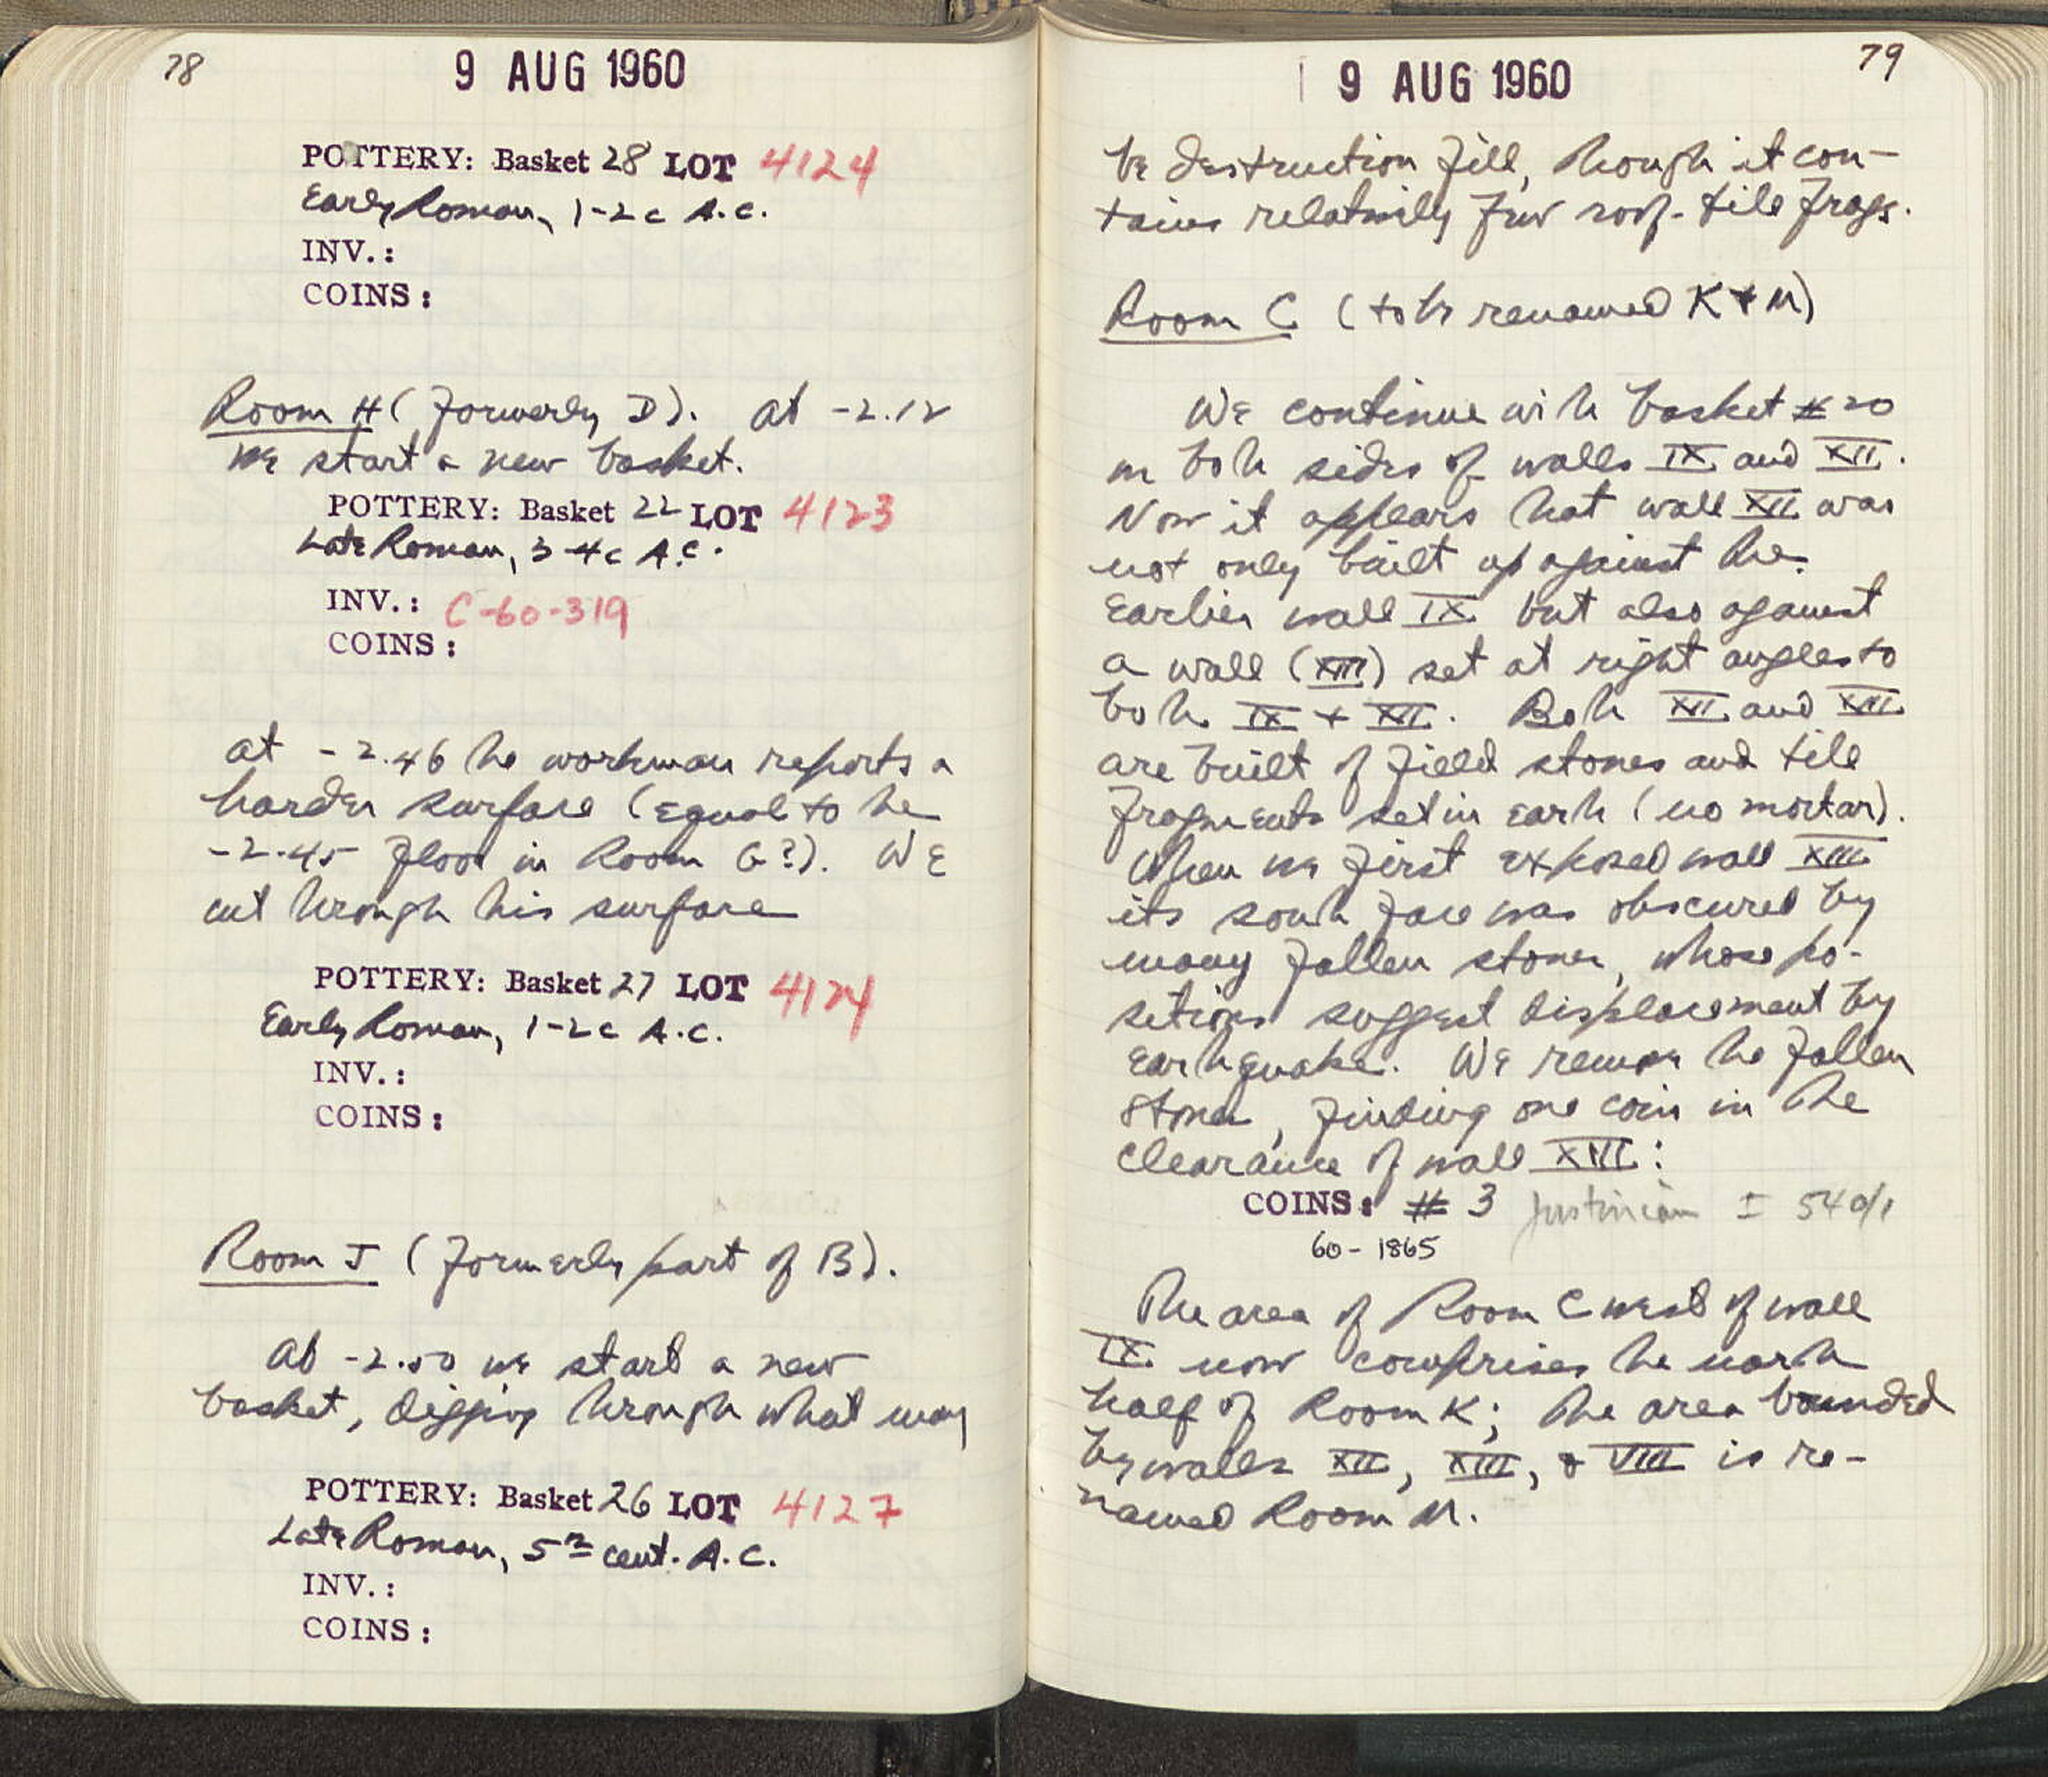 78
9 AUG 1960
POTTERY: Basket 28 LOT 4124
Early Roman, 1-2 c A.C.
INV.:
COINS:
Room H (formerly D). At -2.12
we start a new basket.
POTTERY: Basket 22 LOT 4123
Late Roman, 3-4 c A.C.
INV.: C-60-319
COINS:
At -2.46 the workman reports a
harder surface (equal to the
-2.45 floor in Room G?). We
cut through this surface
POTTERY: Basket 27 LOT 4124
Early Roman, 1-2 c A.C.
INV.:
COINS:
Room J (formerly part of B).
At -2.50 we start a new
basket, digging through what may
POTTERY: Basket 26 LOT 4127
Late Roman, 5th cent. A.C.
INV.:
COINS:
79
9 AUG 1960
be destruction fill, though it con-
tains relatively few roof-tile frags.
Room C (to be renamed K + M)
We continue with basket #20
on both sides of walls IX and XII.
Now it appears that wall XII was
not only built up against the
earlier wall IX but also against
a wall (XIII) set at right angles to
both IX + XII. Both XII and XIII
are built of field stones and tile
fragments set in earth (no mortar).
When we first exposed wall XIII
its south face was obscured by
many fallen stones, whose po-
sitions suggest displacement by
earthquake. We remove the fallen
stones, finding one coin in the
clearance of wall XIII:
COINS: # 3 Justinian I 540/1
60-1865
The area of Room C west of wall
IX now comprises the north
half of Room K; the area bounded
by walls XII, XIII, & VIII is re-
named Room M.